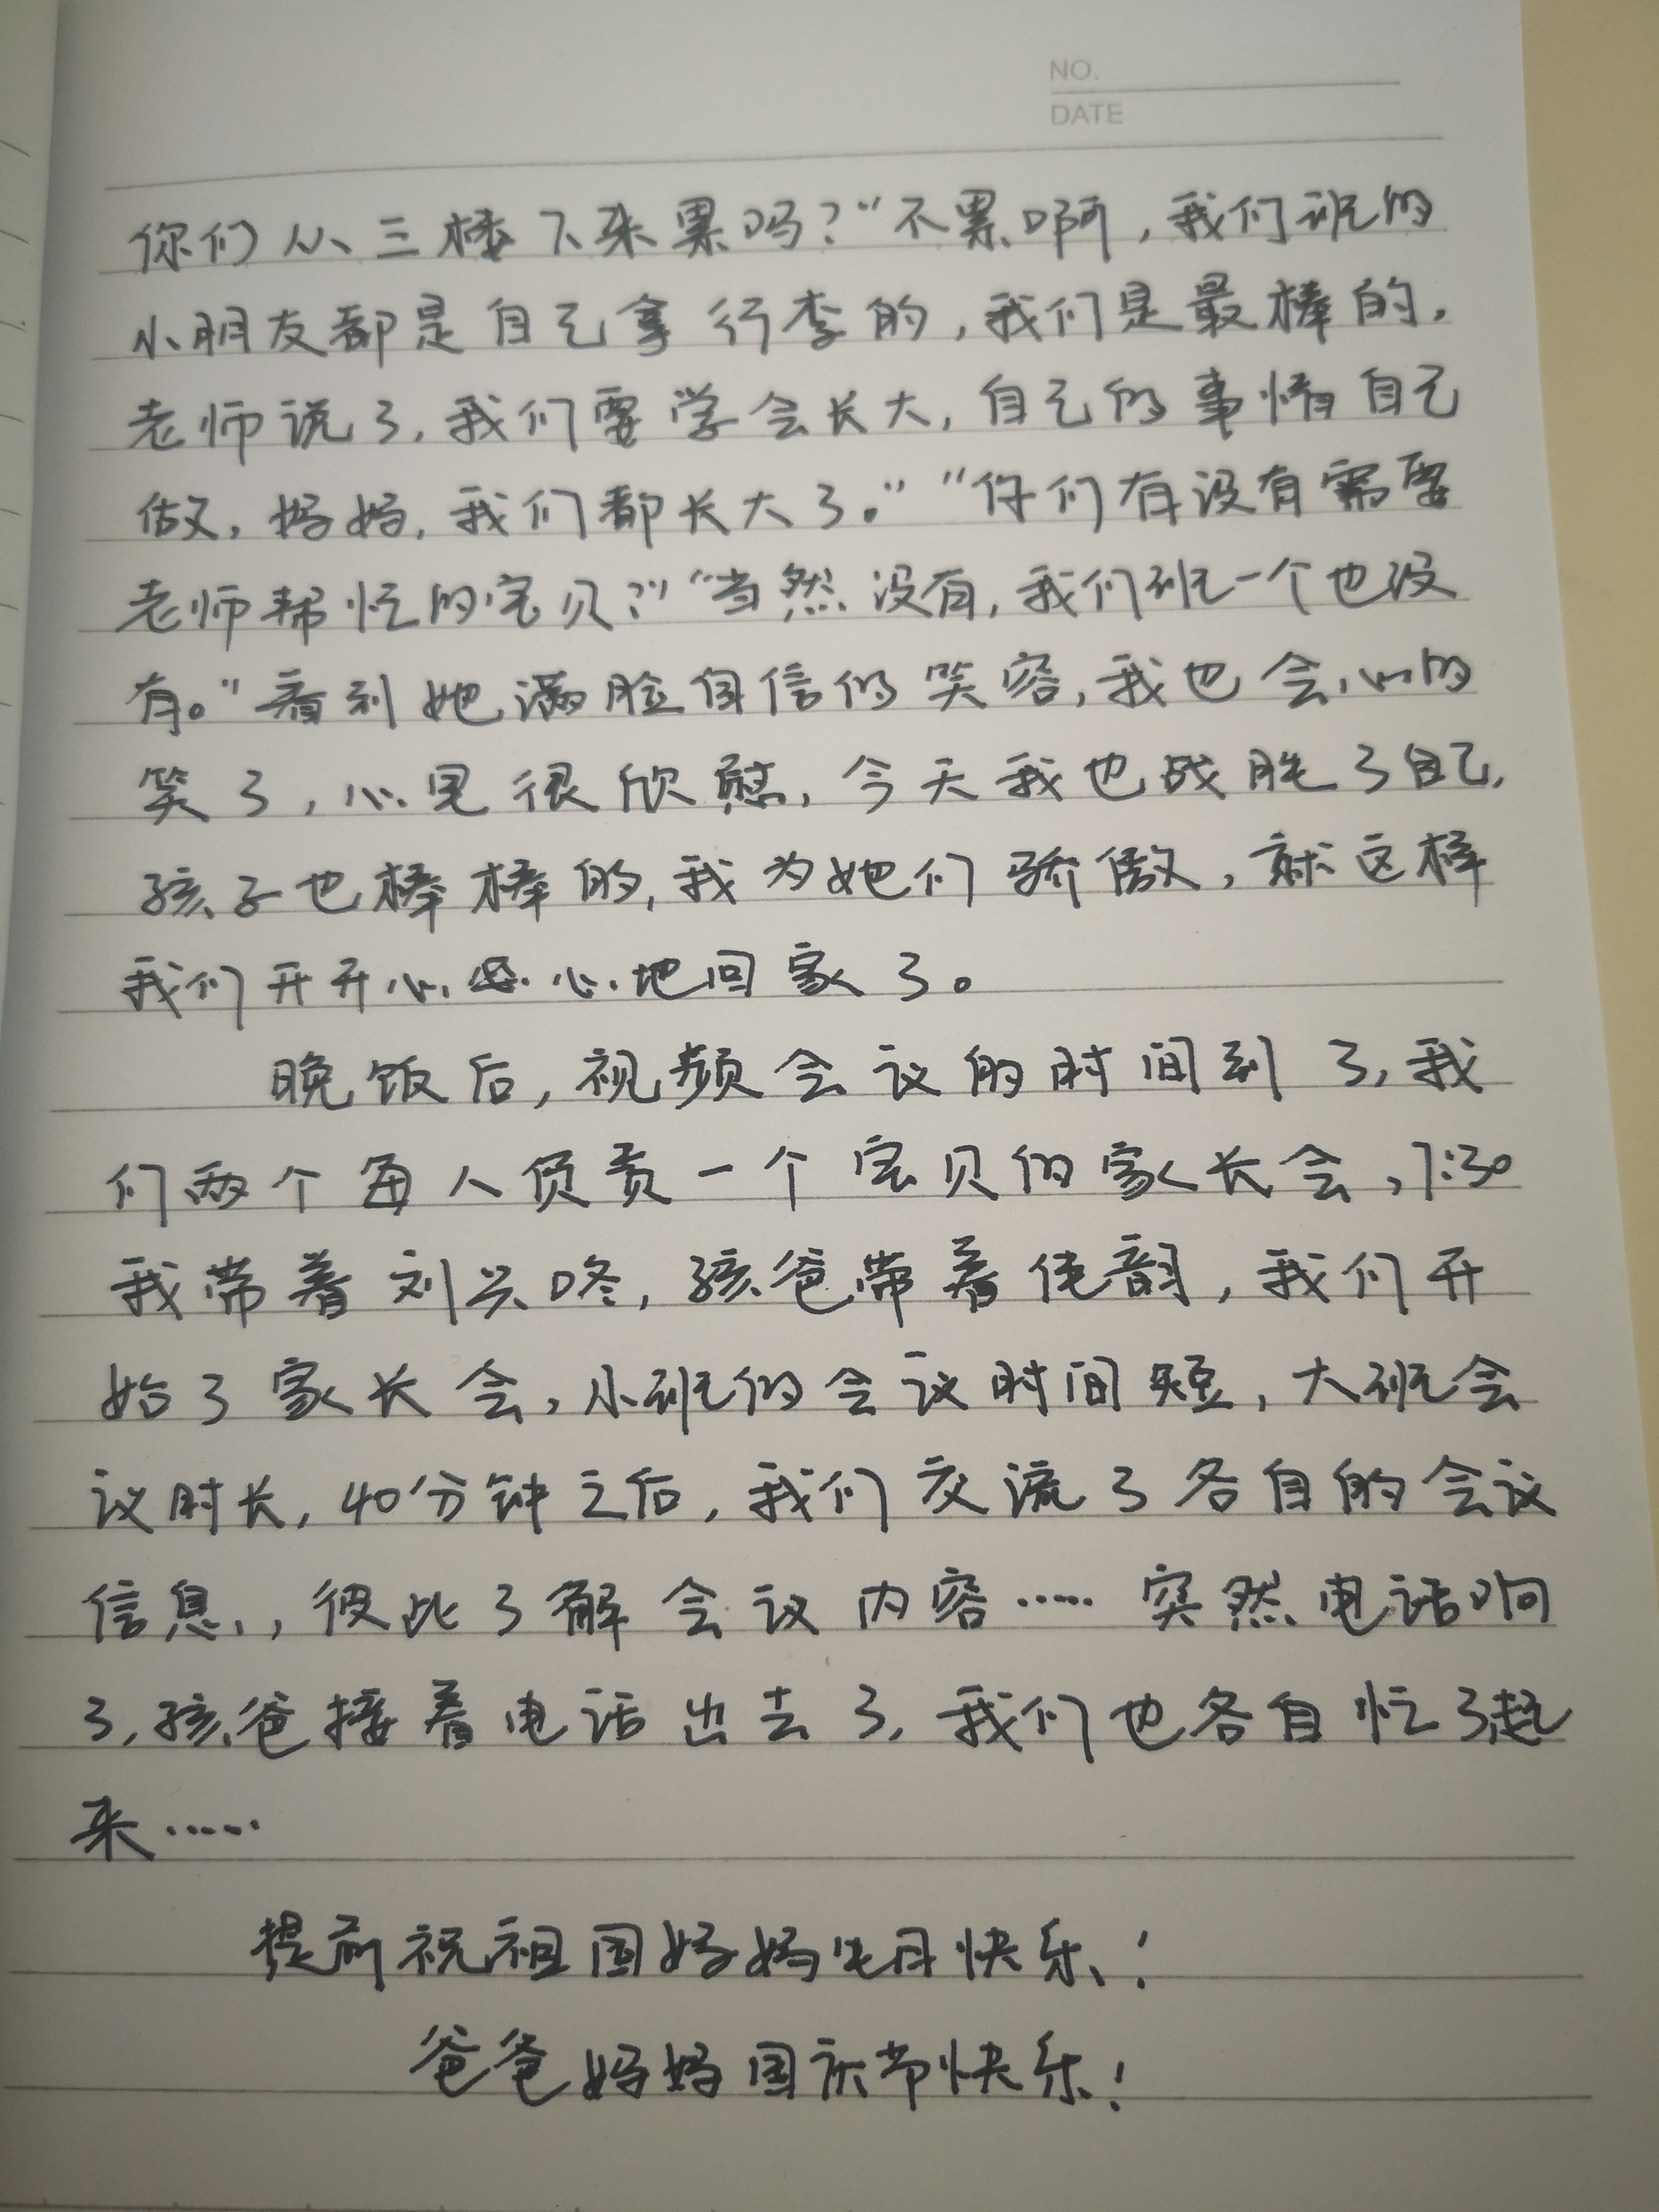 NO.
DATE
你们从三楼下来累吗？“不累啊，我们班的
小朋友都是自己拿行李的，我们是最棒的，
老师说了，我们要学会长大，自己的事情自己
做，妈妈，我们都长大了。”“你们有没有需要
老师帮忙的宝贝？”“当然没有，我们班一个也没
有。”看到她满脸自信的笑容，我也会心的
笑了，心里很欣慰，今天我也战胜了自己，
孩子也棒棒的，我为她们骄傲，就这样
我们开开心心地回家了。
晚饭后，视频会议的时间到了，我
们两个每人负责一个宝贝的家长会，7:30
我带着刘兴咚，孩爸带着佳韵，我们开
始了家长会，小班的会议时间短，大班会
议时长，40分钟之后，我们交流了各自的会议
信息，，彼此了解会议内容……突然电话响
了，孩爸接着电话出去了，我们也各自忙了起
来……
提前祝祖国妈妈生日快乐！
爸爸妈妈国庆节快乐！